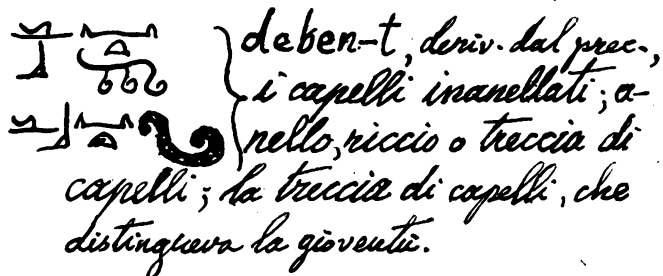 deben-t, deriv. dal prec.,
i capelli inanellati; a-
nello, riccio o treccia di
capelli; la treccia di capelli, che
distingueva la gioventù.